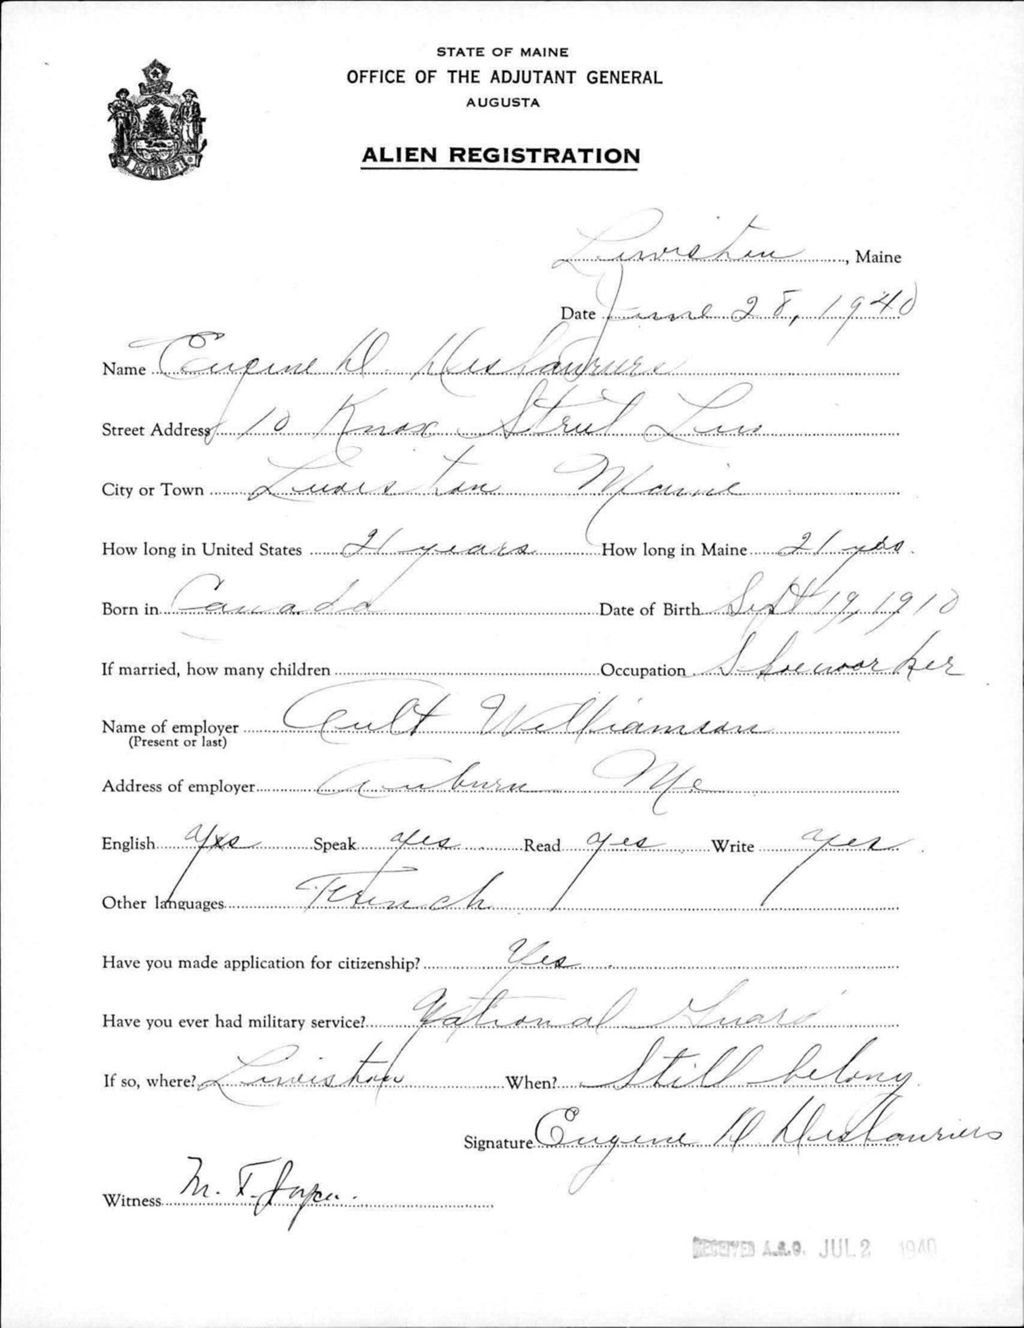 STATE OF MAINE
OFFICE OF THE ADJUTANT GENERAL
AUGUSTA
ALIEN REGISTRATION
MAINE
Lewiston, Maine
Date June 28, 1940
Name Eugene D. Deslauriers
Street Address 10 Knox Street Lew
City or Town Lewiston Maine
How long in United States 21 years How long in Maine 21 yrs.
Born in Canada Date of Birth Sept 19, 1910
If married, how many children Occupation Shoeworker
Name of employer Ault Williamson
(Present or last)
Address of employer Auburn Me
English Yes Speak yes Read yes Write yes
Other languages French
Have you made application for citizenship? Yes
Have you ever had military service? National Guard
If so, where? Lewiston When? Still belong
Signature Eugene D Deslauriers
Witness M. F. Joyce.
RECEIVED A.G.O. JUL 2 1940